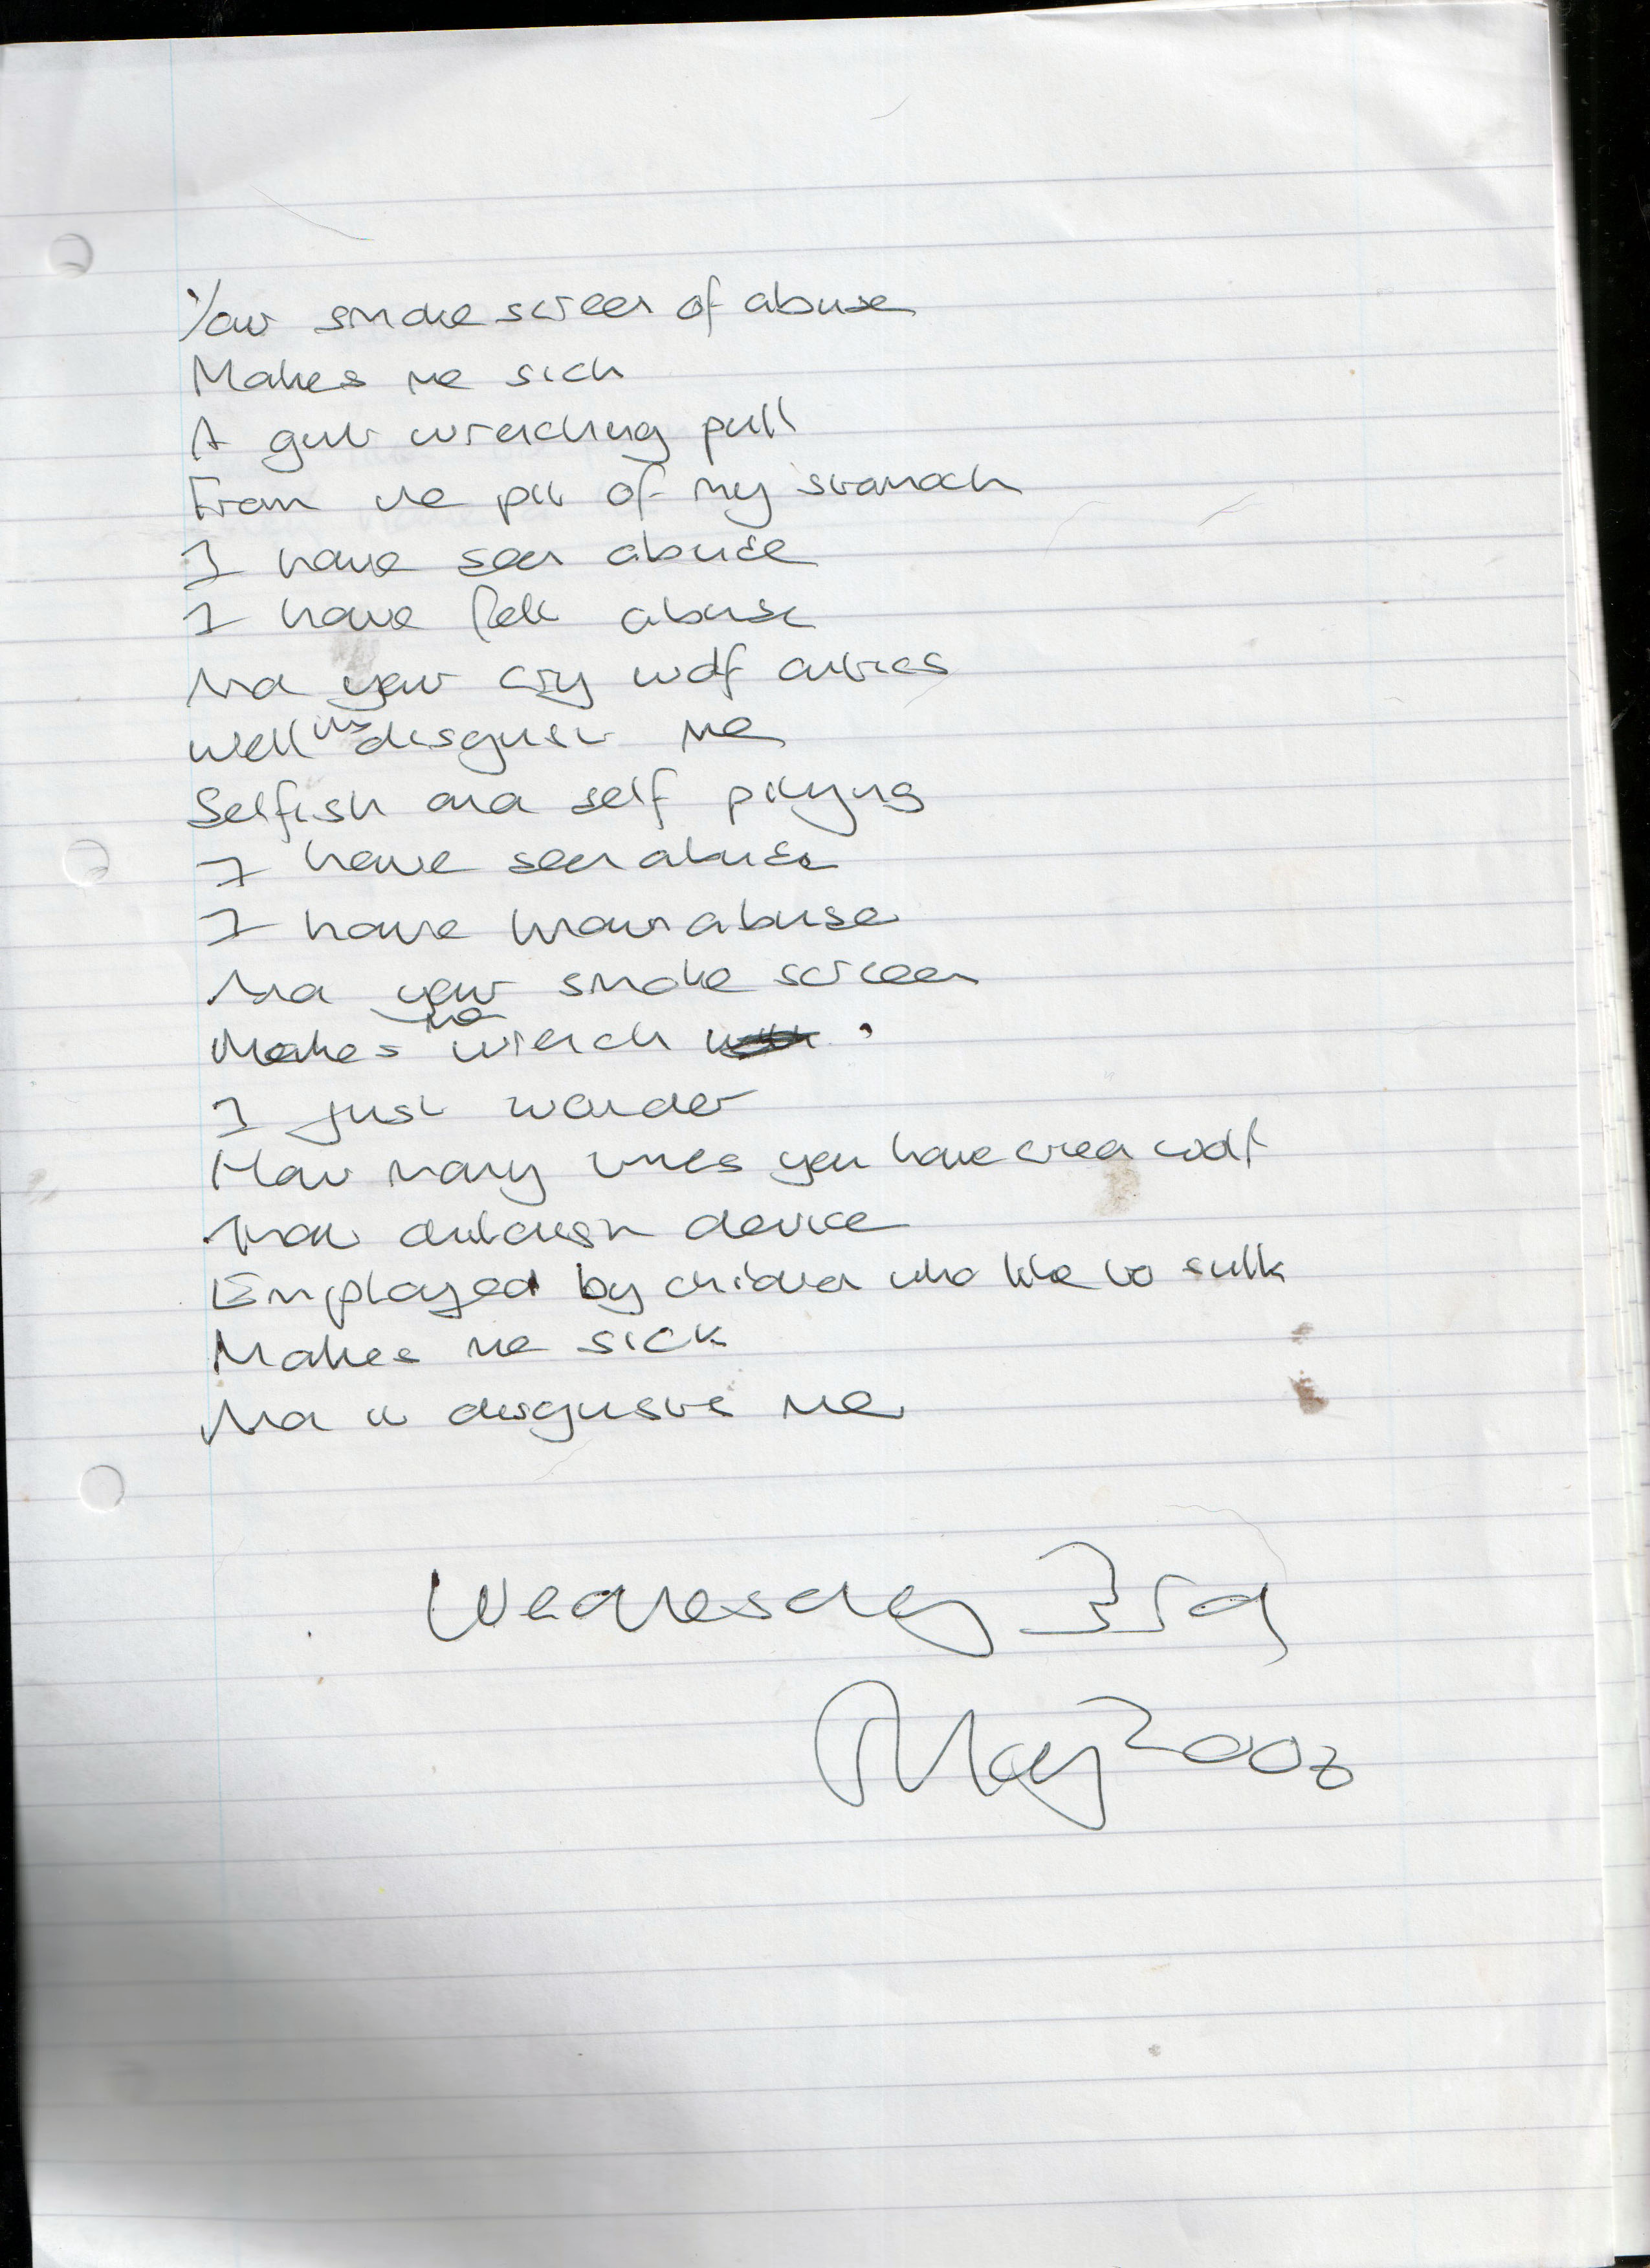 Your smoke screen of abuse
Makes me sick
A gut wrenching pull
From the pit of my stomach
I have seen abuse
I have felt abuse
And your cry wolf antics
Well they disgust me
Selfish and self pitying
I have seen abuse
I have known abuse
And your smoke screen
Makes me wrench
I just wonder
How many times you have cried wolf
That childish device
Employed by children who like to sulk
Makes me sick
And it disgusts me
Wednesday 3rd
May